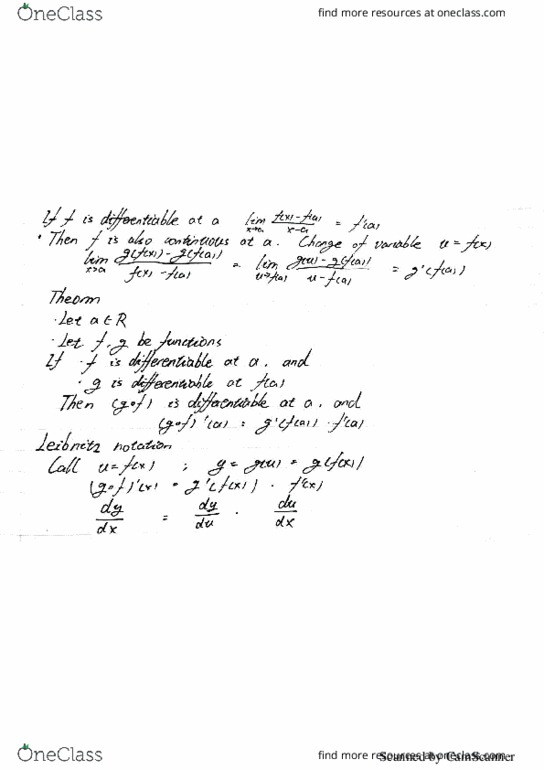 OneClass find more resources at oneclass.com
If f is differentiable at a lim x→a f(x)-f(a) / x-a = f'(a)
· Then f is also continuous at a. Change of variable u = f(x)
lim x→a g(f(x)) - g(f(a)) / f(x) - f(a) = lim u→f(a) g(u) - g(f(a)) / u - f(a) = g'(f(a))
Theorm
· Let a ∈ R
· Let f, g be functions
If · f is differentiable at a, and
· g is differentiable at f(a)
Then (g∘f) is differentiable at a, and
(g∘f)'(a) = g'(f(a)) · f'(a)
Leibnitz notation
Call u = f(x) ; y = g(u) = g(f(x))
(g∘f)'(x) = g'(f(x)) · f'(x)
dy/dx = dy/du · du/dx
OneClass find more resources at oneclass.com
Scanned by CamScanner